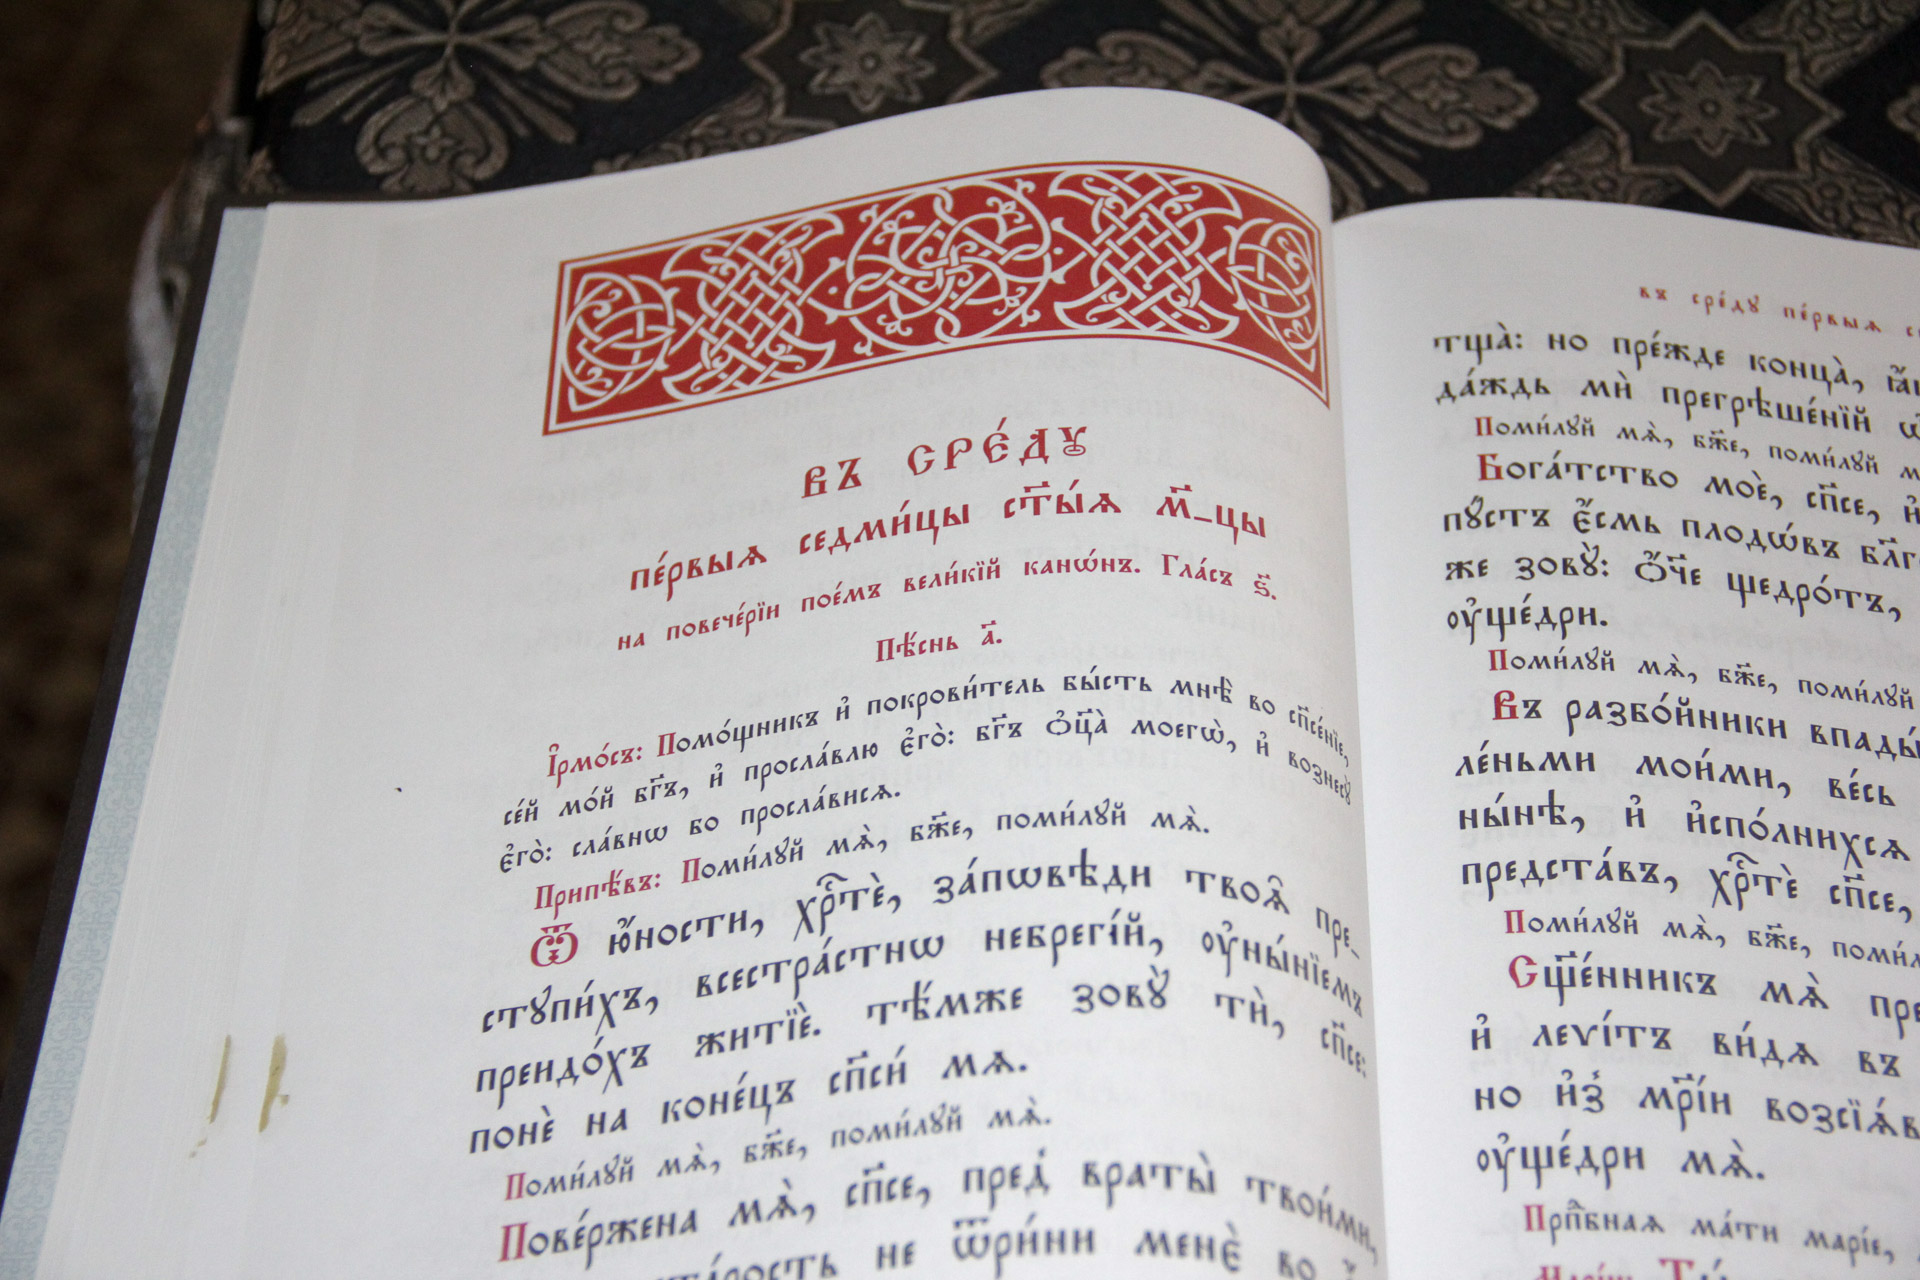 въ сре́дꙋ
пе́рвыѧ седми́цы ст҃ы́ѧ м҃-цы
на повече́рїи пое́мъ вели́кїй канѡ́нъ. Гла́съ ѕ҃.
Пѣ́снь а҃.
І҆рмо́съ: Помо́щникъ и҆ покрови́тель бы́сть мнѣ̀ во сп҃се́нїе,
се́й мо́й бг҃ъ, и҆ просла́влю є҆го̀: бг҃ъ ѻ҆ц҃а̀ моегѡ̀, и҆ вознесꙋ̀
є҆го̀: сла́внѡ бо просла́висѧ.
Припѣ́въ: Поми́лꙋй мѧ̀, бж҃е, поми́лꙋй мѧ̀.
Ѿ ю҆́ности, хрⷭ҇тѐ, за́пѡвѣди твоѧ̑ пре-
стꙋпи́хъ, всестра́стнѡ небрегі́й, ᲂу҆ны́нїемъ
преидо́хъ житїѐ. тѣ́мже зовꙋ̀ тѝ, сп҃се:
понѐ на коне́цъ сп҃си́ мѧ.
Поми́лꙋй мѧ̀, бж҃е, поми́лꙋй мѧ̀.
Пове́ржена мѧ̀, сп҃се, пред̾ враты̀ твои́ми,
не ѿри́ни менѐ во
въ сре́дꙋ пе́рвыѧ
тща̀: но пре́жде конца̀,
да́ждь мѝ прегрѣше́нїй
Поми́лꙋй мѧ̀, бж҃е, поми́лꙋй
Бога́тство моѐ, сп҃се,
пꙋстъ є҆́смь плодѡ́въ
же зовꙋ̀: Ѻ҆́ч҃е щедро́тъ,
ᲂу҆ще́дри.
Поми́лꙋй мѧ̀, бж҃е, поми́лꙋй
Въ разбо́йники
ле́ньми мои́ми, ве́сь
ны́нѣ, и҆ и҆спо́лнихсѧ
предста́въ, хрⷭ҇тѐ сп҃се,
Поми́лꙋй мѧ̀, бж҃е,
Сщ҃е́нникъ мѧ̀
и҆ леѵі́тъ ви́дѧ въ
но и҆з̾ мр҃і́и
ᲂу҆ще́дри мѧ̀.
Прпⷣбнаѧ ма́ти марі́е,